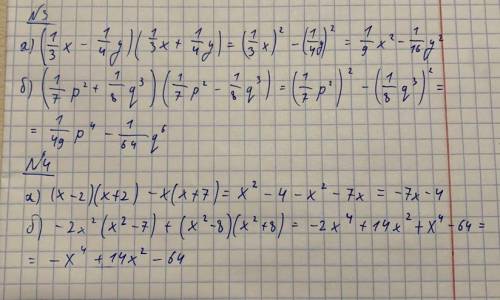 №3
а) (1/3 x - 1/4 y)(1/3 x + 1/4 y) = (1/3 x)² - (1/4y)² = 1/9 x² - 1/16 y²
б) (1/7 p² + 1/8 q³)(1/7 p² - 1/8 q³) = (1/7 p²)² - (1/8 q³)² =
= 1/49 p⁴ - 1/64 q⁶
№4
а) (x-2)(x+2) - x(x+7) = x² - 4 - x² - 7x = -7x - 4
б) -2x²(x²-7) + (x²-8)(x²+8) = -2x⁴ + 14x² + x⁴ - 64 =
= -x⁴ + 14x² - 64